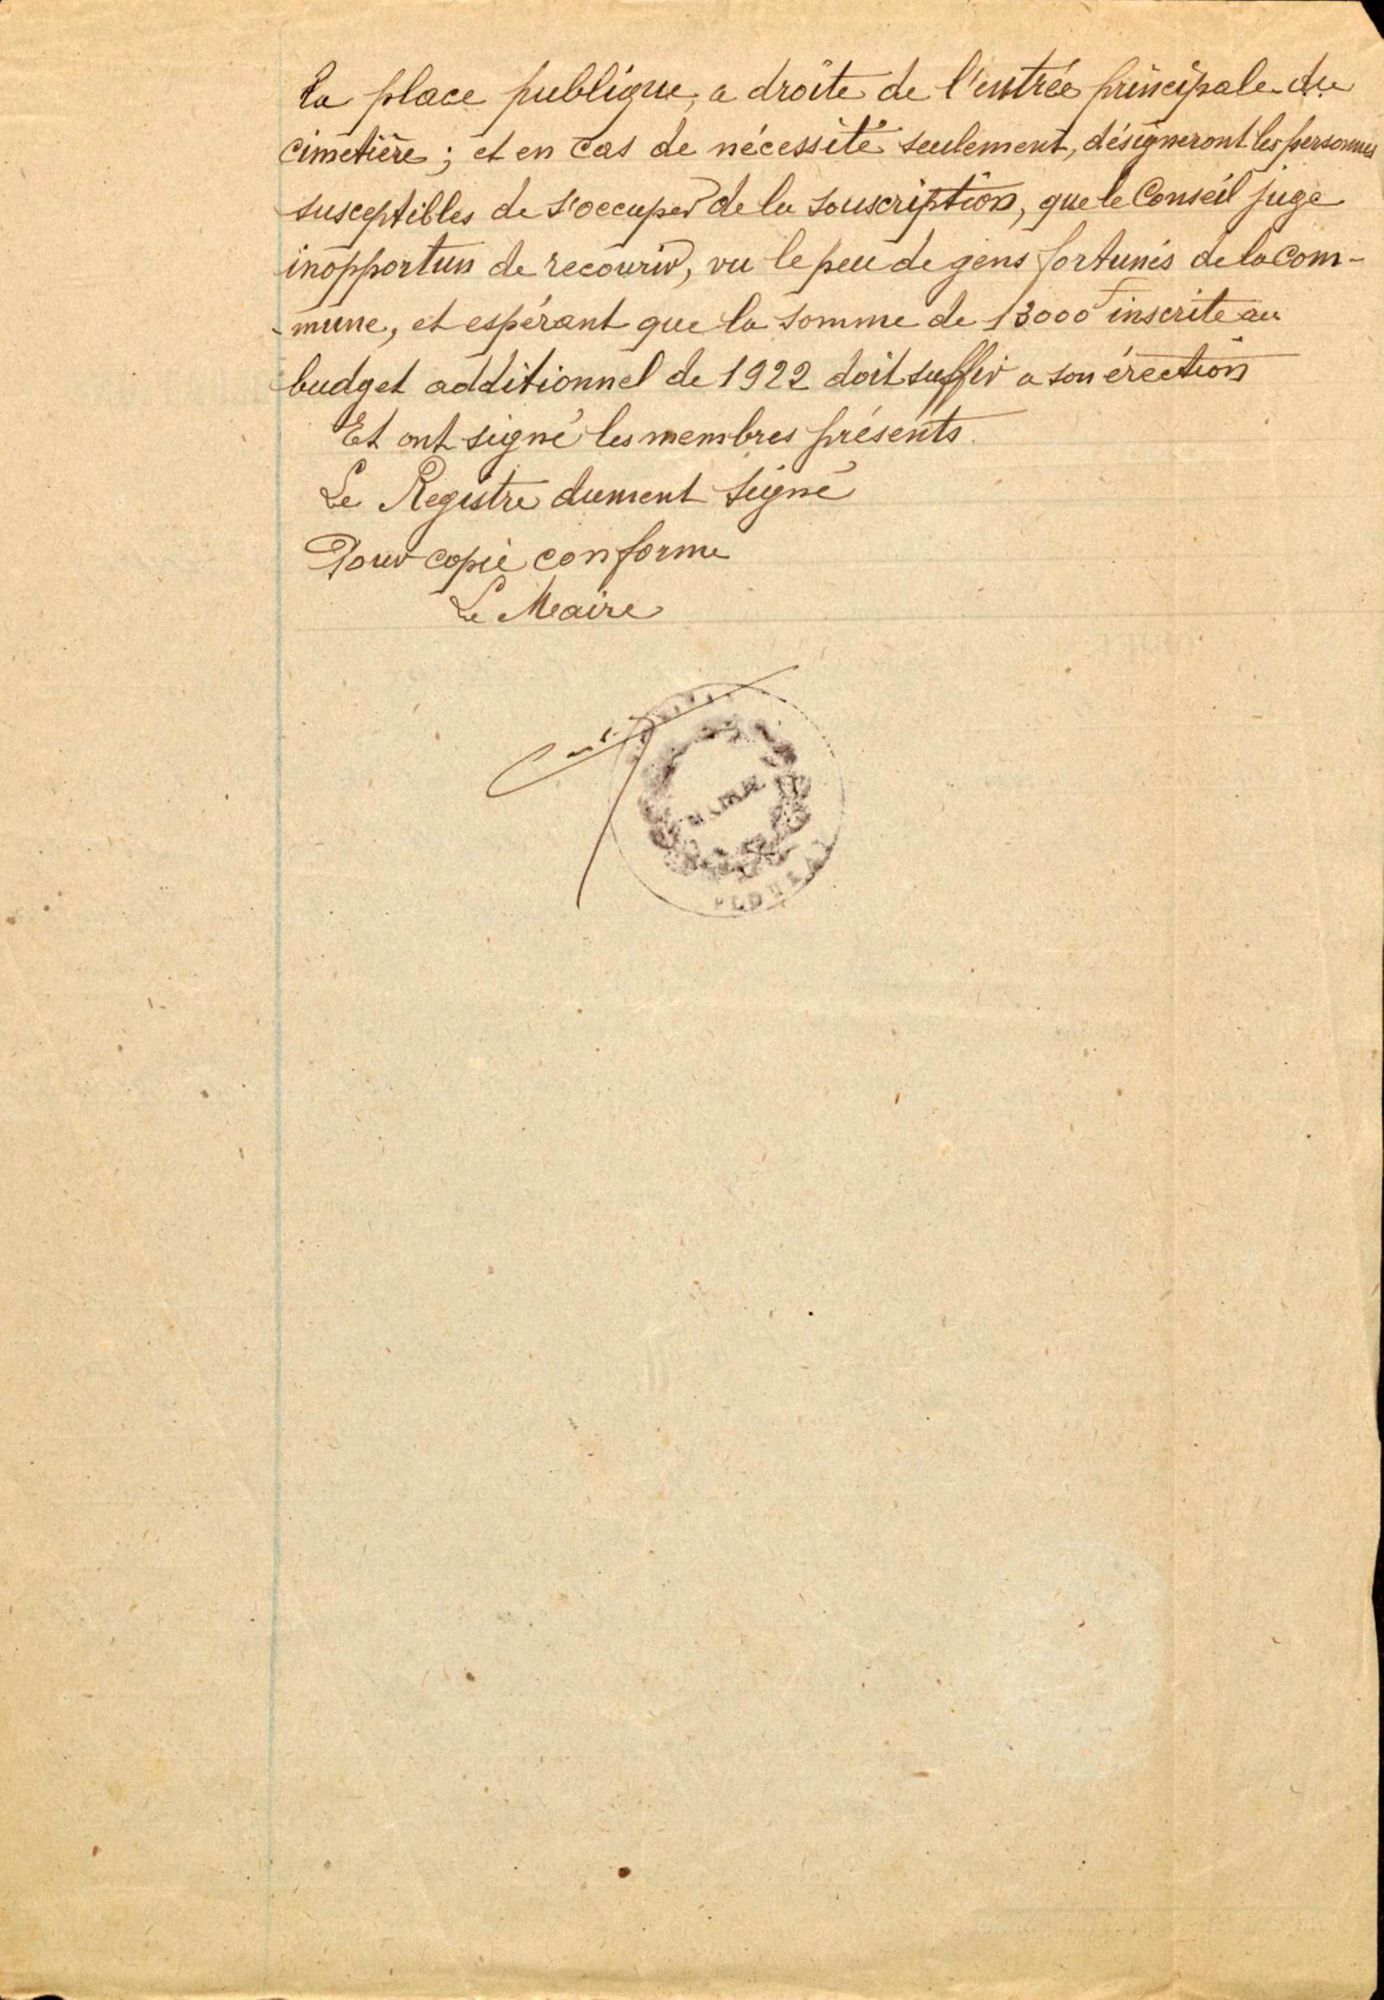 la place publique, a droite de l'entrée principale du
cimetière ; et en cas de nécessité seulement, désigneront les personnes
susceptibles de s'occuper de la souscription, que le Conseil juge
inopportun de recourir, vu le peu de gens fortunés de la com-
-mune, et espérant que la somme de 13000F inscrite au
budget additionnel de 1922 doit suffir a son érection
Et ont signé les membres présents.
Le Registre dument signé
Pour copie conforme
Le Maire
MAIRIE